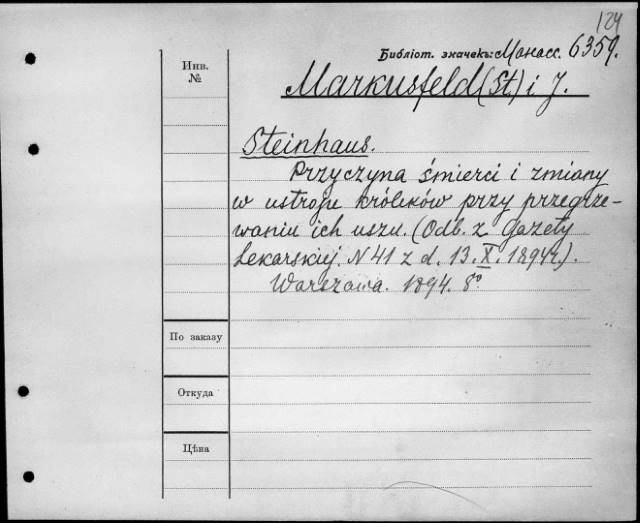 124
Библіот. значекъ: Монасс. 6359.
Инв.
№
Markusfeld (St.) i J.
Steinhaus.
Przyczyna śmierci i zmiany
w ustroju królików przy przegrze-
waniu ich uszu. (Odb. z Gazety
Lekarskiej. N 41 z d. 13. X. 1894 r.).
Warszawa. 1894. 8°
По заказу
Откуда
Цѣна